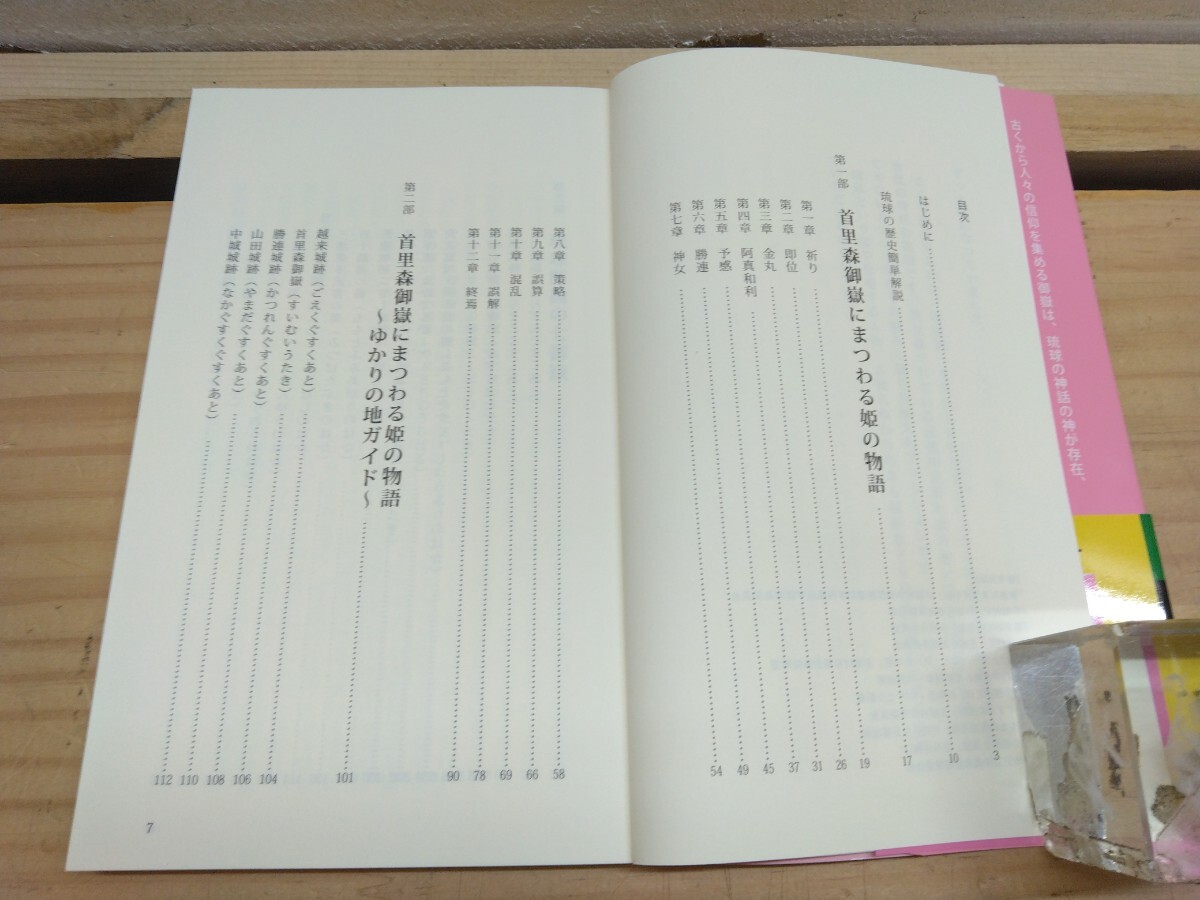 古くから人々の信仰を集める御嶽は、琉球の神話の神が存在、
目次
はじめに………3
琉球の歴史簡単解説………10
第一部 首里森御嶽にまつわる姫の物語………17
第一章 祈り………19
第二章 即位………26
第三章 金丸………31
第四章 阿真和利………37
第五章 予感………45
第六章 勝連………49
第七章 神女………54
第八章 策略………58
第九章 誤算………66
第十章 混乱………69
第十一章 誤解………78
第十二章 終焉………90
第二部 首里森御嶽にまつわる姫の物語
〜ゆかりの地ガイド〜………101
越来城跡（ごえくぐすくあと）………104
首里森御嶽（すいむいうたき）………106
勝連城跡（かつれんぐすくあと）………108
山田城跡（やまだぐすくあと）………110
中城城跡（なかぐすくぐすくあと）………112
7